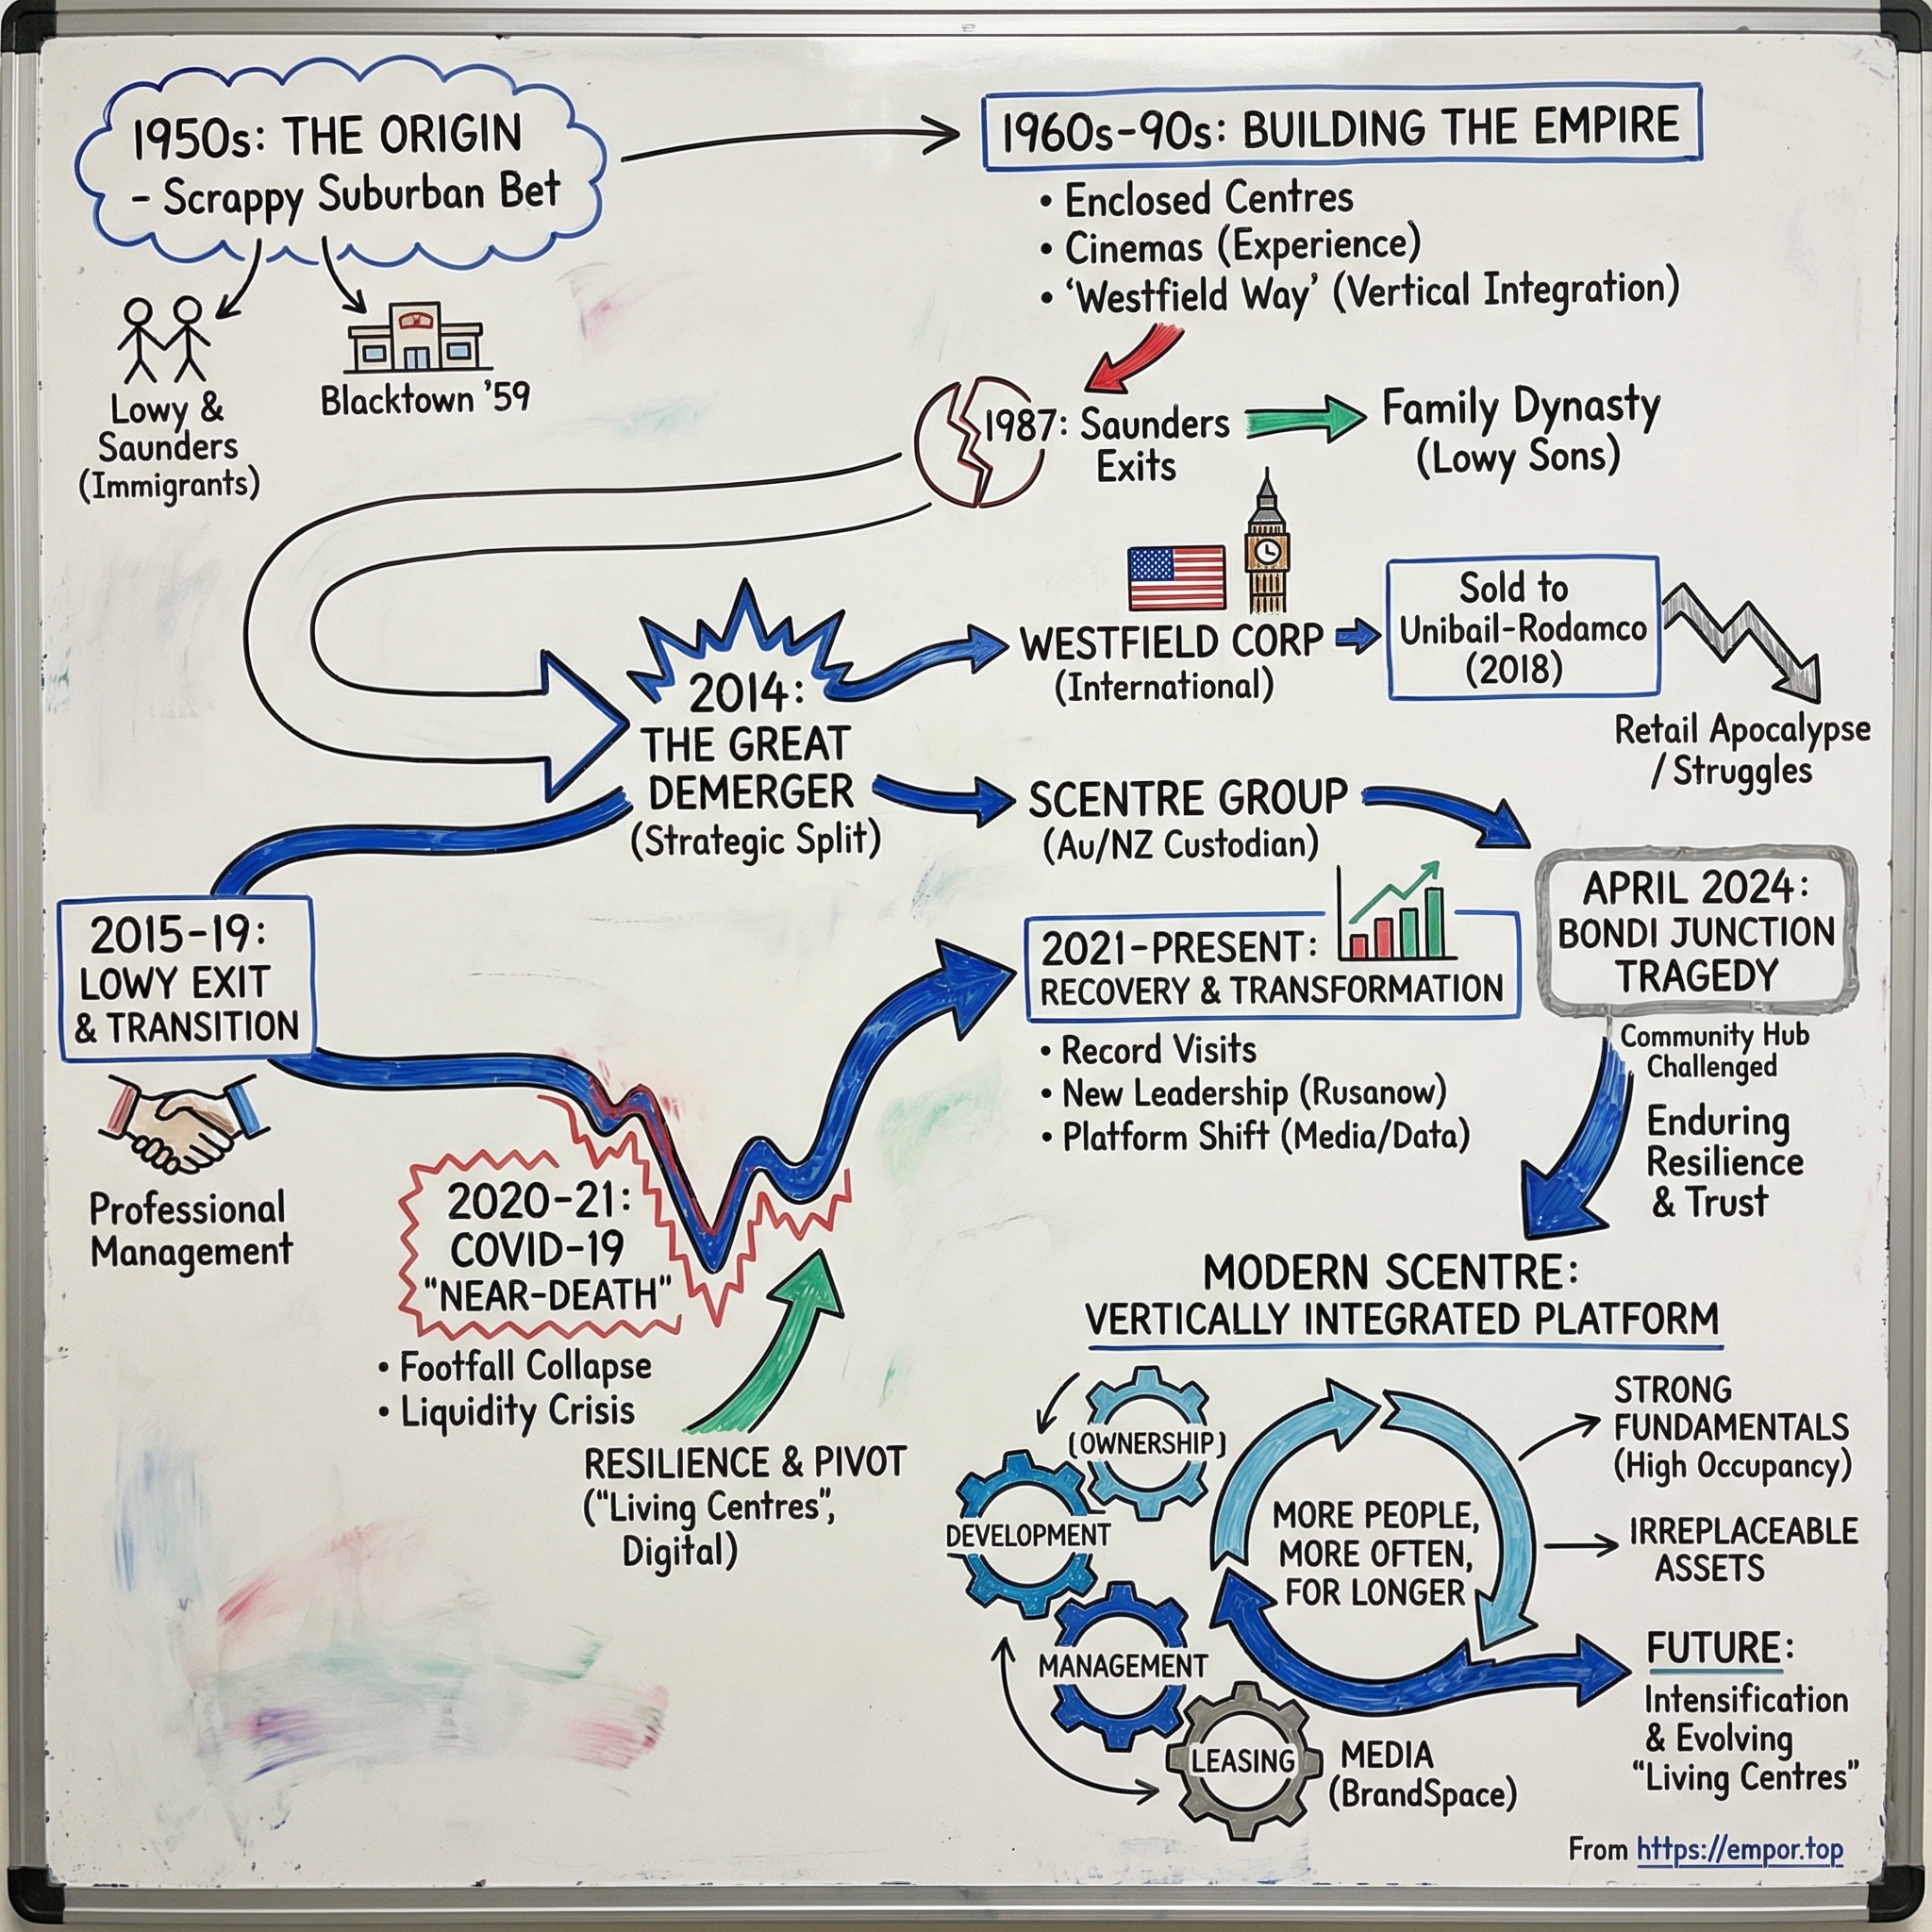 1950s: THE ORIGIN
- Scrappy Suburban Bet
Lowy &
Saunders
(Immigrants)
Blacktown '59
1960s-90s: BUILDING THE EMPIRE
• Enclosed Centres
• Cinemas (Experience)
• 'Westfield Way' (Vertical Integration)
1987: Saunders
Exits
Family Dynasty
(Lowy Sons)
2014:
THE GREAT
DEMERGER
(Strategic Split)
WESTFIELD CORP
(International)
Sold to
Unibail-Rodamco
(2018)
Retail Apocalypse
/ Struggles
SCENTRE GROUP
(Au/NZ Custodian)
2015-19:
LOWY EXIT
& TRANSITION
Professional
Management
2020-21:
COVID-19
"NEAR-DEATH"
• Footfall Collapse
• Liquidity Crisis
RESILIENCE & PIVOT
("Living Centres",
Digital)
2021-PRESENT:
RECOVERY & TRANSFORMATION
• Record Visits
• New Leadership (Rusanow)
• Platform Shift (Media/Data)
APRIL 2024:
BONDI JUNCTION
TRAGEDY
Community Hub
Challenged
Enduring
Resilience
& Trust
MODERN SCENTRE:
VERTICALLY INTEGRATED PLATFORM
(OWNERSHIP)
DEVELOPMENT
MANAGEMENT
LEASING
MEDIA
(BrandSpace)
MORE PEOPLE,
MORE OFTEN,
FOR LONGER
STRONG
FUNDAMENTALS
(High Occupancy)
IRREPLACEABLE
ASSETS
FUTURE:
Intensification
& Evolving
"Living Centres"
From https://empor.top